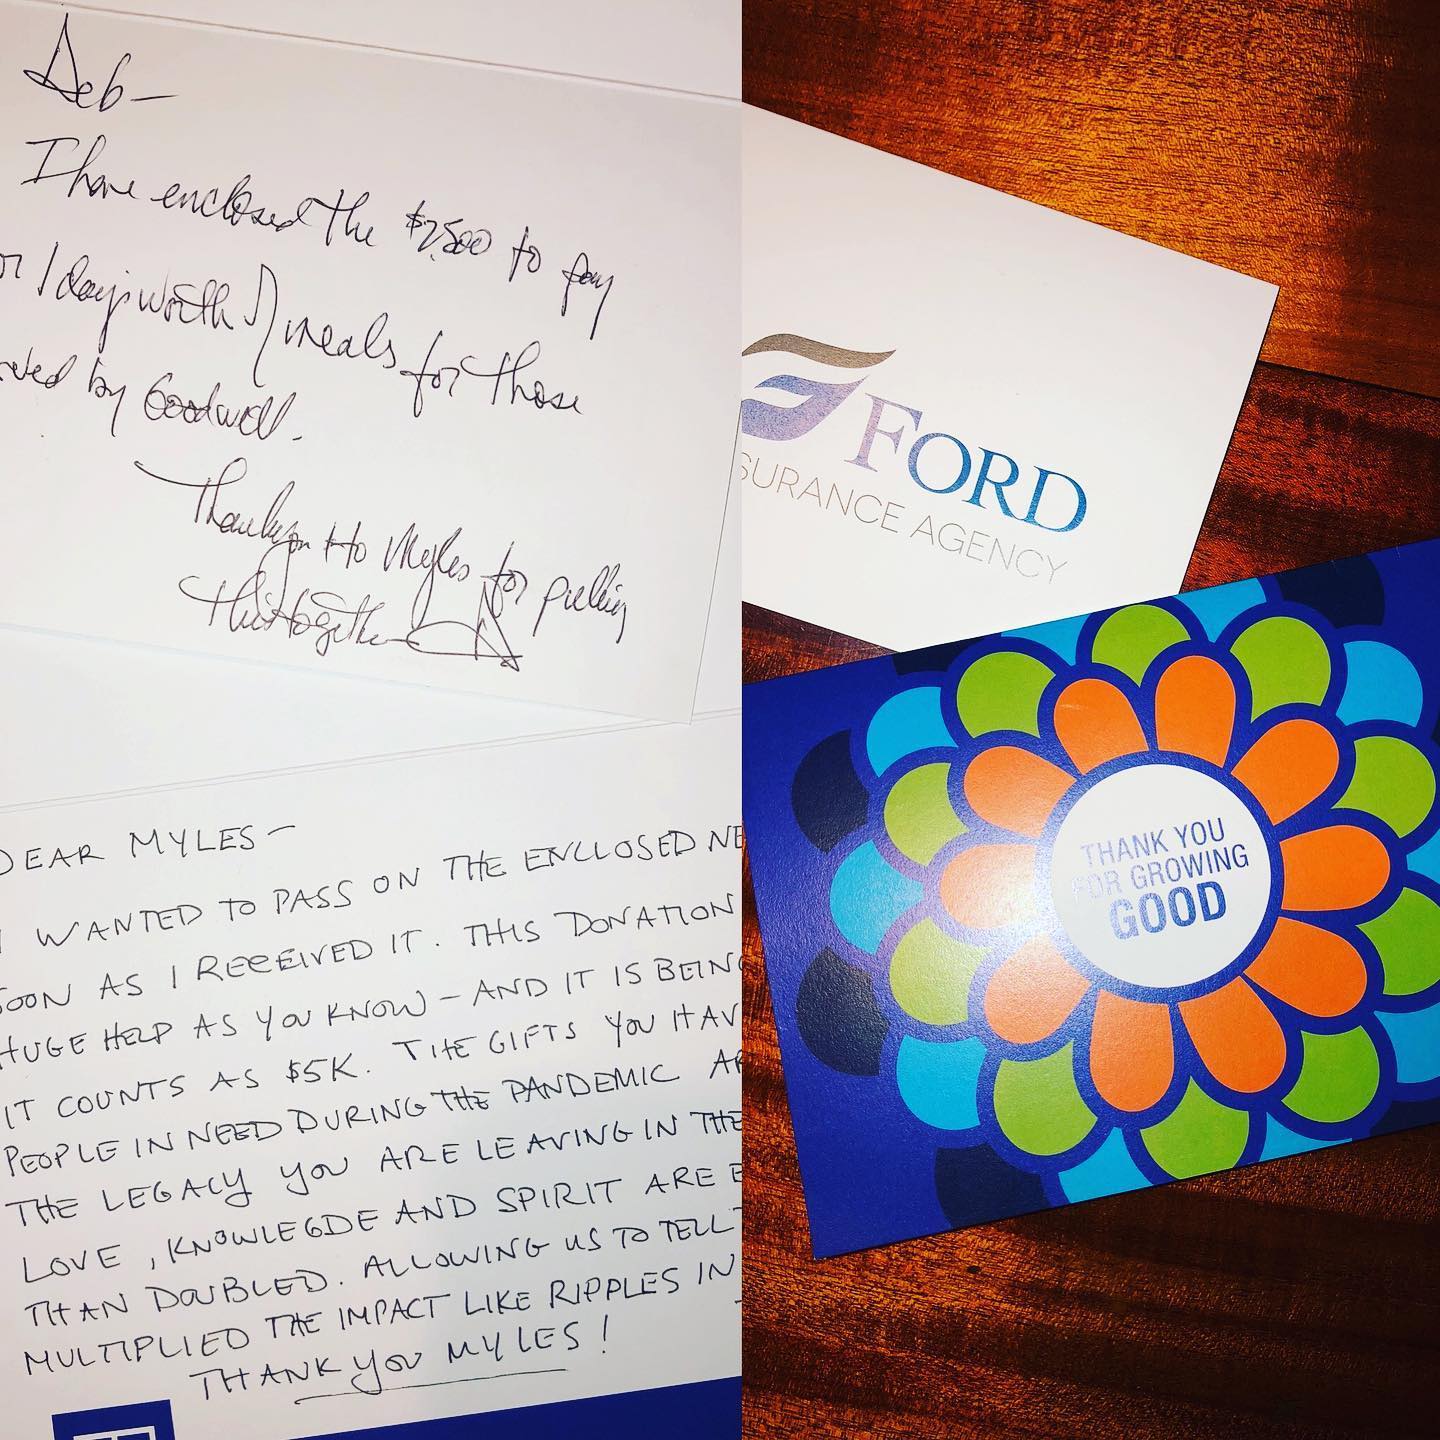 Deb—
I have enclosed the $2,500 to pay
or 1 day's worth of meals for those
by Goodwill.
Thank you to Myles for pulling
this together
DEAR MYLES—
I WANTED TO PASS ON THE ENCLOSED NE
SOON AS I RECEEIVED IT. THIS DONATION
HUGE HELP AS YOU KNOW – AND IT IS BEING
IT COUNTS AS $5K. THE GIFTS YOU HAV
PEOPLE IN NEED DURING THE PANDEMIC AR
THE LEGACY YOU ARE LEAVING IN THE
LOVE, KNOWLEGDE AND SPIRIT ARE E
THAN DOUBLED. ALLOWING US TO TELL
MULTIPLIED THE IMPACT LIKE RIPPLES IN
THANK YOU MYLES!
FORD
SURANCE AGENCY
THANK YOU
FOR GROWING
GOOD